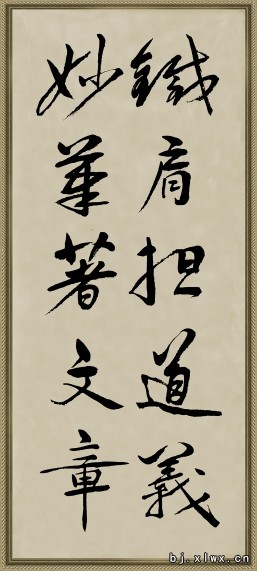 鐵肩担道義
妙筆著文章
bj.xlwx.cn